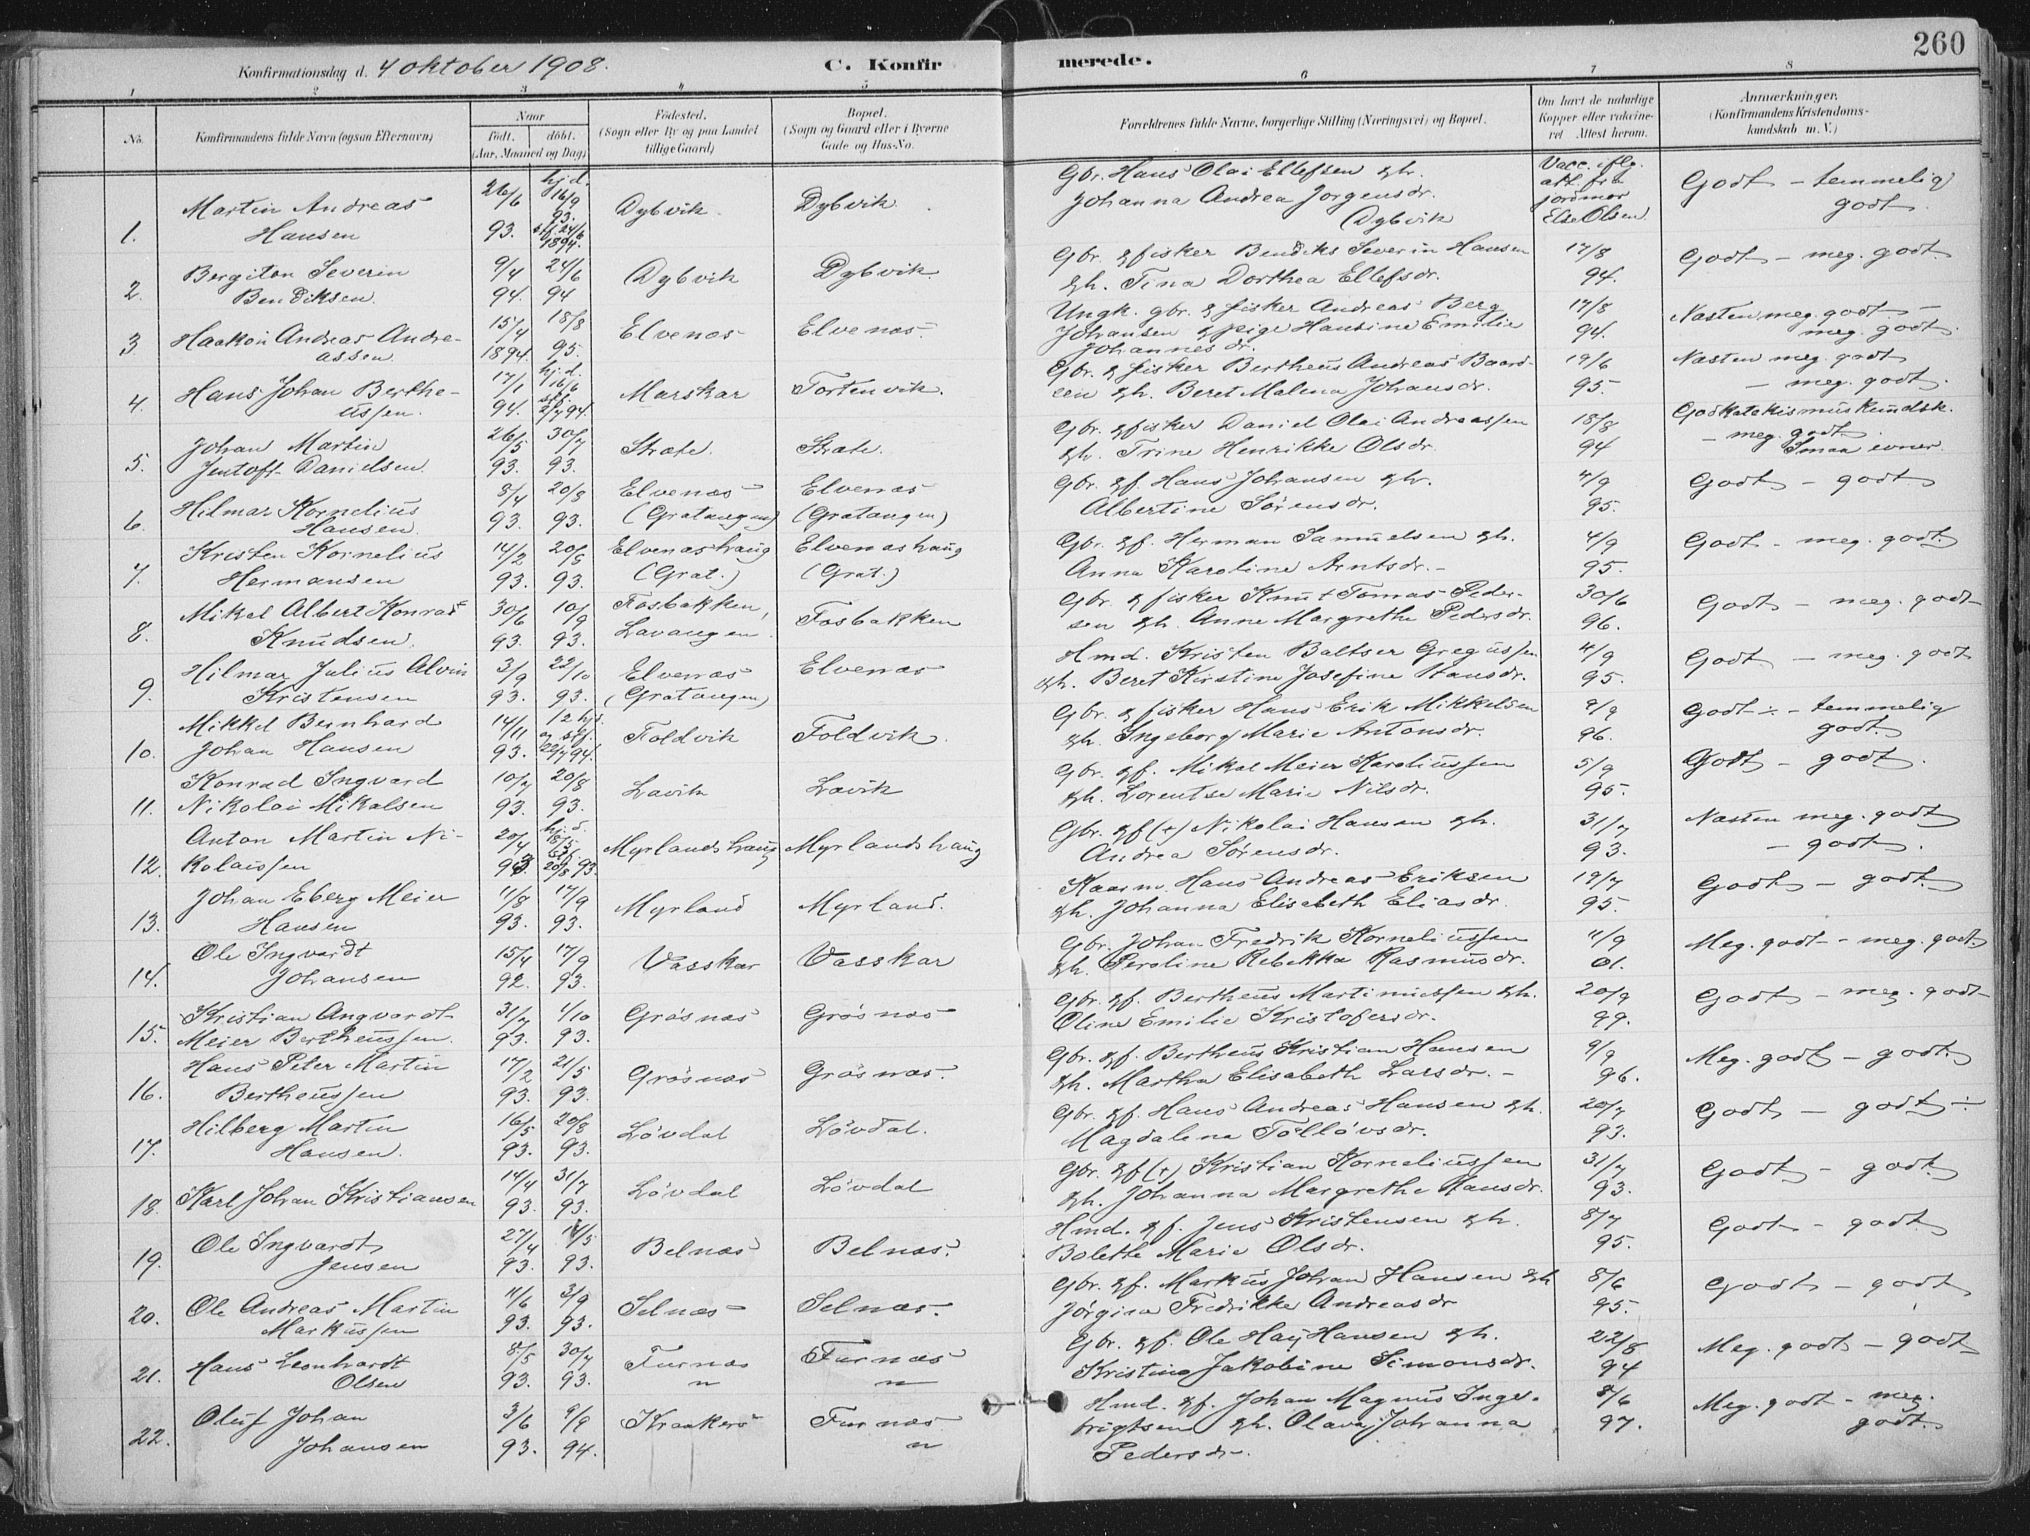 260
Konfirmationsdag d. 4 oktober 1908. C. Konfirmerede.
1 2 3 4 5 6 7 8
No. Konfirmandens fulde Navn (ogsaa Efternavn) Naar Födt. döbt. (Aar, Maaned og Dag) Födested. (Sogn eller By og paa Landet tillige Gaard) Bopæl. (Sogn og Gaard eller i Byerne Gade og Hus-No. Forældrenes fulde Navne, borgerlige Stilling (Næringsvei) og Bopæl. Om havt de naturlige Kopper eller vakcineret Attest herom. Anmærkninger. (Konfirmandens Kristendomskundskab m. V.)
1. Martin Andreas Hansen 26/6 93. hj. d. 16/9 93. stf. 24/6 1894. Dybvik. Dybvik. Gbr. Hans Olai Ellefsen & h. Johanna Andrea Jorgensdr. (Dybvik Vacc. iflg. att. fra jordmor Else Olsen Godt - temmelig godt.
2. Bergiton Severin Bendiksen. 9/4 94. 24/6 94 Dybvik Dybvik. Gbr. & fisker Bendiks Severin Hansen & h. Tina Dorthea Ellefsdr. 17/8 94. Godt - meg. godt
3 Haakon Andreas Andreassen. 15/4 1894. 18/8 95. Elvenæs Elvenæs. Ungk. gbr. & fisker Andreas Berg Johansen & pige Hansine Emilie Johannesdr. 17/8 94. Næsten meg. godt - meg. godt.
4. Hans Johan Bertheussen. 17/1 94. hj. d. 16/6 stf. 2/7 94. Marskar Tortenvik. Gbr. & fisker Bertheus Andreas Baardsen & h. Beret Malena Johansdr. 19/6 95. Næsten meg. godt - meg. godt.
5. Johan Martin Jentoft Danielsen. 26/5 93. 30/7 93. Stræte. Stræte. Gbr. & fisker Daniel Olai Andreassen & h. Trine Henrikke Olsdr. 18/8 94 God katekismuskundsk. - meg. godt. Smaa evner.
6. Hilmar Kornelius Hansen. 8/4 93. 20/8 93. Elvenæs (Gratangen) Elvenæs (Gratangen) Gbr. & f. Hans Johansen & h. Albertine Sørensdr. 4/9 95. Godt - godt
7. Kristen Kornelius Hermansen 14/2 93. 20/8 93. Elvenæshaug (Grat.) Elvenæshaug (Grat.) Gbr. & f. Herman Samuelsen & h. Anna Karoline Arntsdr. - 4/9 95. Godt - meg. godt.
8. Mikal Albert Konrad Knudsen. 30/6 93. 10/9 93. Fosbakken, Lavangen. Fosbakken Gbr. & fisker Knut Tomas Pedersen & h. Anne Margrethe Pedersdr. 30/6 96. Godt - meg. godt
9. Hilmar Julius Alvin Kristensen 3/9 93. 22/10 93. Elvenæs (Gratangen) Elvenæs Hmd. Kristen Baltser Gregussen & h. Beret Kirstine Josefine Hansdr. 4/9 95. Godt - meg. godt
10. Mikkel Bernhard Johan Hansen 14/11 93. 12 hj. og stf. 22/7 94. Foldvik Foldvik. Gbr. & fisker Hans Erik Mikkelsen & h. Ingeborg Marie Antonsdr. 9/9 96. Godt - temmelig godt.
11. Konrad Ingvard Nikolai Mikalsen 10/7 93. 20/8 93. Lavik Lavik Gbr. & f. Mikal Meier Karoliussen & h. Lorentse Marie Nilsdr. 5/9 95. Godt - godt.
12. Anton Martin Nikolaissen 20/4 93 hj. d. 18/5 stf. 20/8 93. Myrlandshaug Myrlandshaug Gbr. & f (+) Nikolai Hansen & h. Andrea Sørensdr. 31/7 93. Næsten meg. godt - godt.
13. Johan Eberg Meier Hansen 11/8 93. 17/9 93. Myrland Myrland. Kaarm. Hans Andreas Eriksen & h. Johanna Elisabeth Eliasdr. 19/7 95. Godt - godt.
14. Ole Ingvardt Johansen 15/4 92. 17/9 93. Vasskar Vasskar Gbr. Johan Fredrik Korneliussen & h. Peroline Rebekka Rasmusdr. 11/9 01. Meg. godt - meg. godt.
15. Kristian Angvardt Meier Bertheussen. 31/7 93. 1/10 93. Grøsnæs Grøsnæs Gbr. & f. Bertheus Martinussen & h. Oline Emilie Kristofersdr. 20/9 99. Godt - meg. godt
16. Hans Peter Martin Bertheussen 17/2 93. 21/5 93. Grøsnæs Grøsnæs. Gbr. & f. Bertheus Kristian Hansen & h. Martha Elisabeth Larsdr. - 9/9 96. Meg. godt - godt.
17. Hilberg Martin Hansen. 16/5 93. 20/8 93. Løvdal Løvdal. Gbr. & f. Hans Andreas Hansen & h. Magdalena Tolløvsdr. 20/7 93. Godt - godt
18. Karl Johan Kristiansen 14/4 93. 31/7 93. Løvdal Løvdal Gbr. & f (+) Kristian Korneliussen & h. Johanna Margrethe Hansdr. 31/7 93. Godt - godt
19. Ole Ingvardt Jensen 27/4 93. 14/5 93. Belnæs Belnæs. Hmd. & f. Jens Kristensen & h. Bolette Marie Olsdr. 8/7 95. Godt - godt
20. Ole Andreas Martin Markussen 11/6 93. 3/9 93. Selnæs Selnæs. Gbr. & f. Markus Johan Hansen & h. Jørgina Fredrikke Andreasdr 8/6 95. Godt - godt
21. Hans Leonhardt Olsen 8/5 93. 30/7 93. Furnæs " Furnæs " Gbr. & f. Ole Hay Hansen & h. Kristina Jakobine Simonsdr. 22/8 94 Meg. godt - godt
22. Oluf Johan Johansen 3/6 93. 9/9 94. Kraakerø Furnæs " Hmd. & f. Johan Magnus Ingebrigtsen & h. Olava Johanna Pedersdr. 8/6 97. Meg. godt - meg. godt.